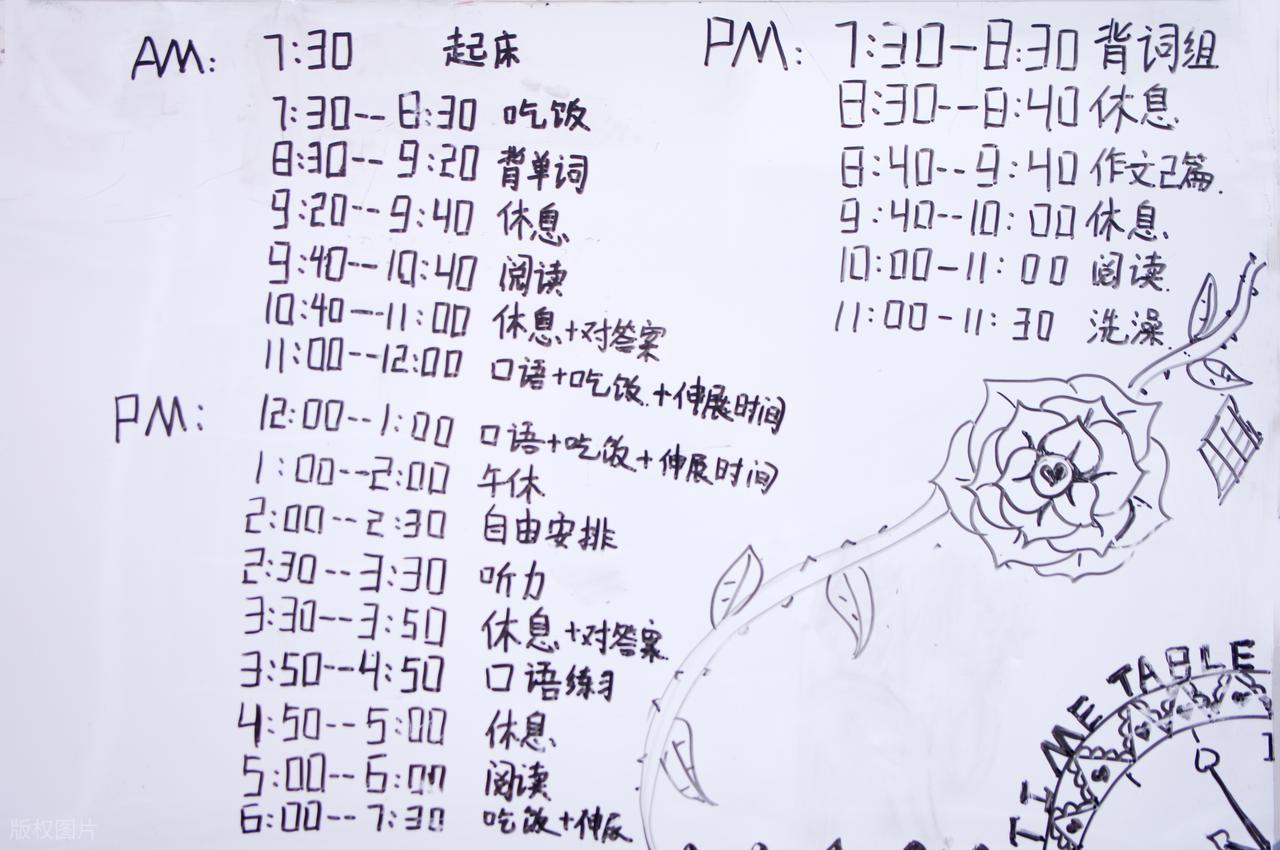 AM: 7:30 起床
7:30--8:30 吃饭
8:30--9:20 背单词
9:20--9:40 休息
9:40--10:40 阅读
10:40--11:00 休息+对答案
11:00--12:00 口语+吃饭+伸展时间
PM: 12:00--1:00 口语+吃饭+伸展时间
1:00--2:00 午休
2:00--2:30 自由安排
2:30--3:30 听力
3:30--3:50 休息+对答案
3:50--4:50 口语练习
4:50--5:00 休息
5:00--6:00 阅读
6:00--7:30 吃饭+伸展
PM: 7:30-8:30 背词组
8:30--8:40 休息
8:40--9:40 作文2篇.
9:40--10:00 休息
10:00-11:00 阅读
11:00-11:30 洗澡
TIME TABLE
版权图片